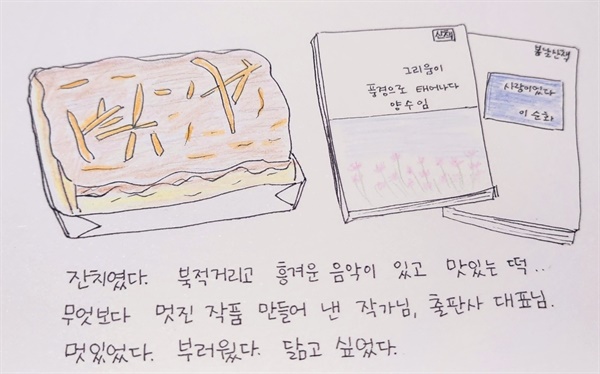 산책
그리움이
풍경으로 태어나다
양수임
봄날산책
사랑이었다
이순화
잔치였다. 북적거리고 흥겨운 음악이 있고 맛있는 떡...
무엇보다 멋진 작품 만들어 낸 작가님, 출판사 대표님.
멋있었다. 부러웠다. 닮고 싶었다.